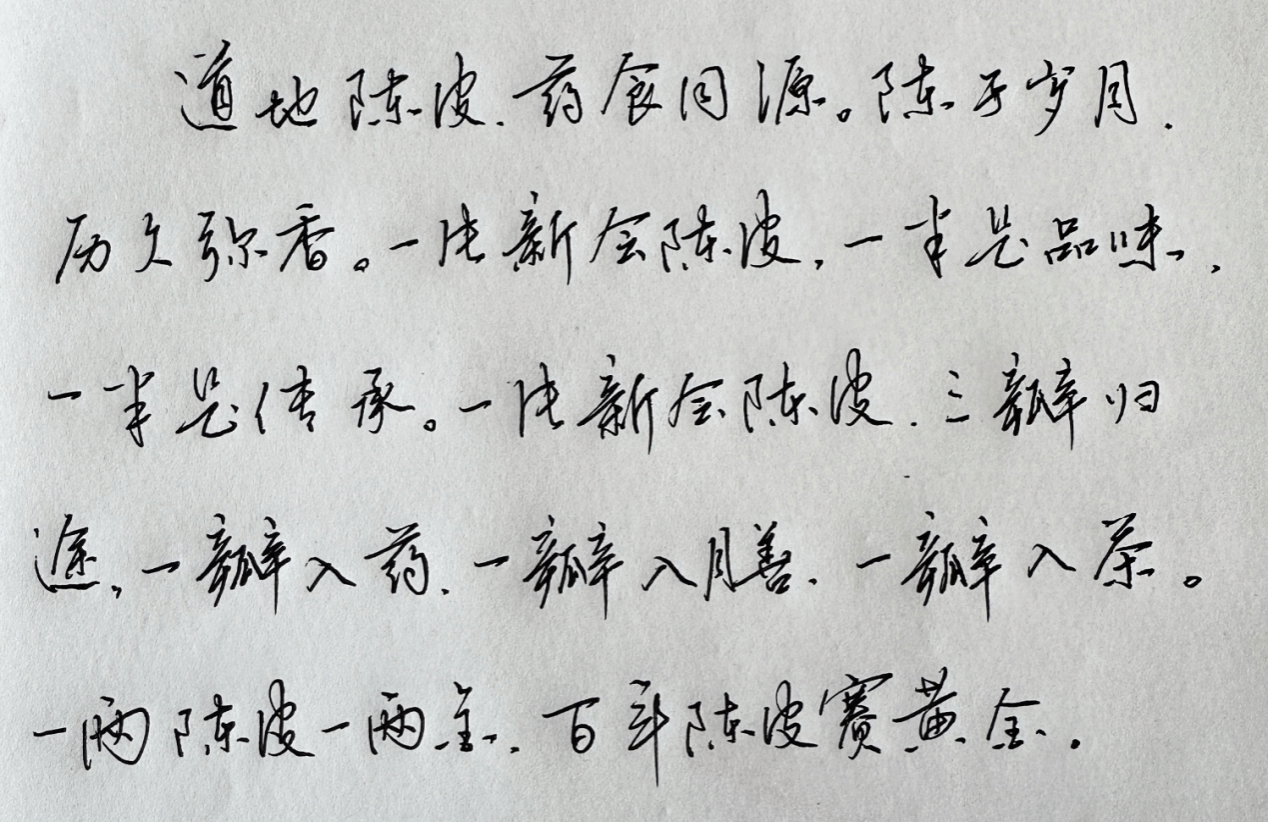 道地陈皮，药食同源。陈于岁月，
历久弥香。一片新会陈皮，一半是品味，
一半是传承。一片新会陈皮，三瓣归
途，一瓣入药，一瓣入膳，一瓣入茶。
一两陈皮一两金，百年陈皮赛黄金。